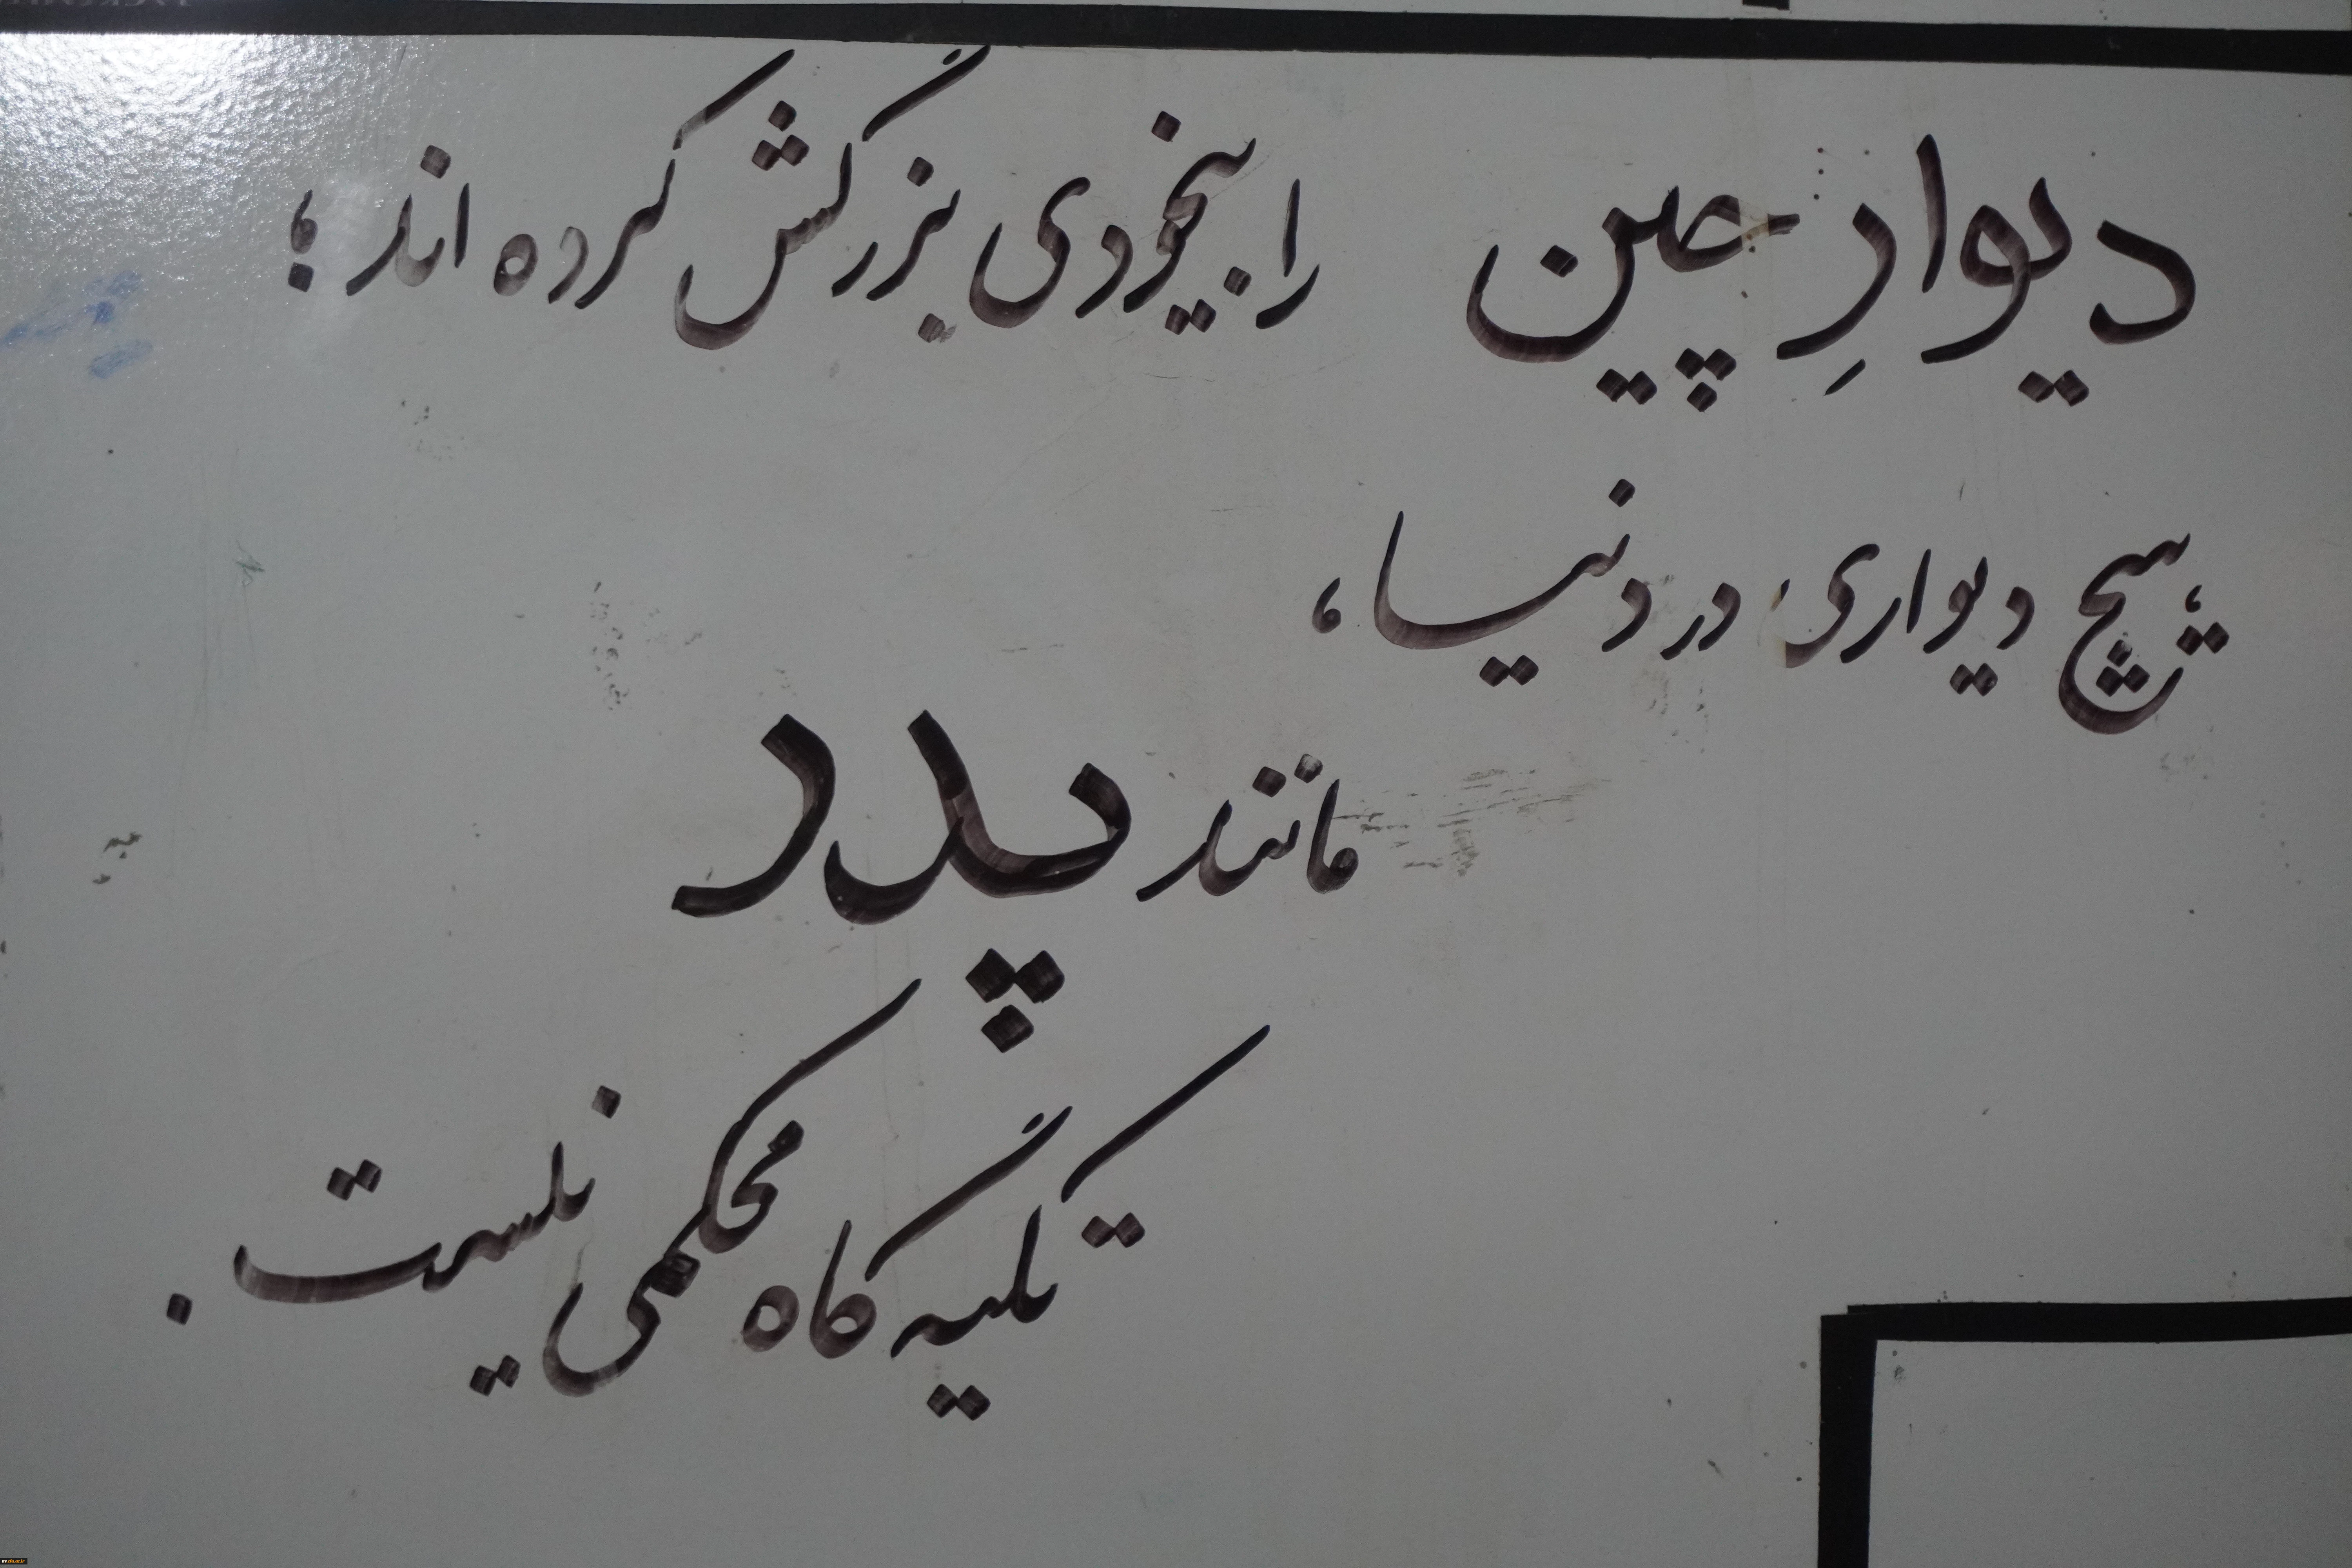 دیوارِ چین را بیخودی بزرگش کرده اند؛
هیچ دیواری در دنیا،
مانند پدر
تکیه گاه محکمی نیست.